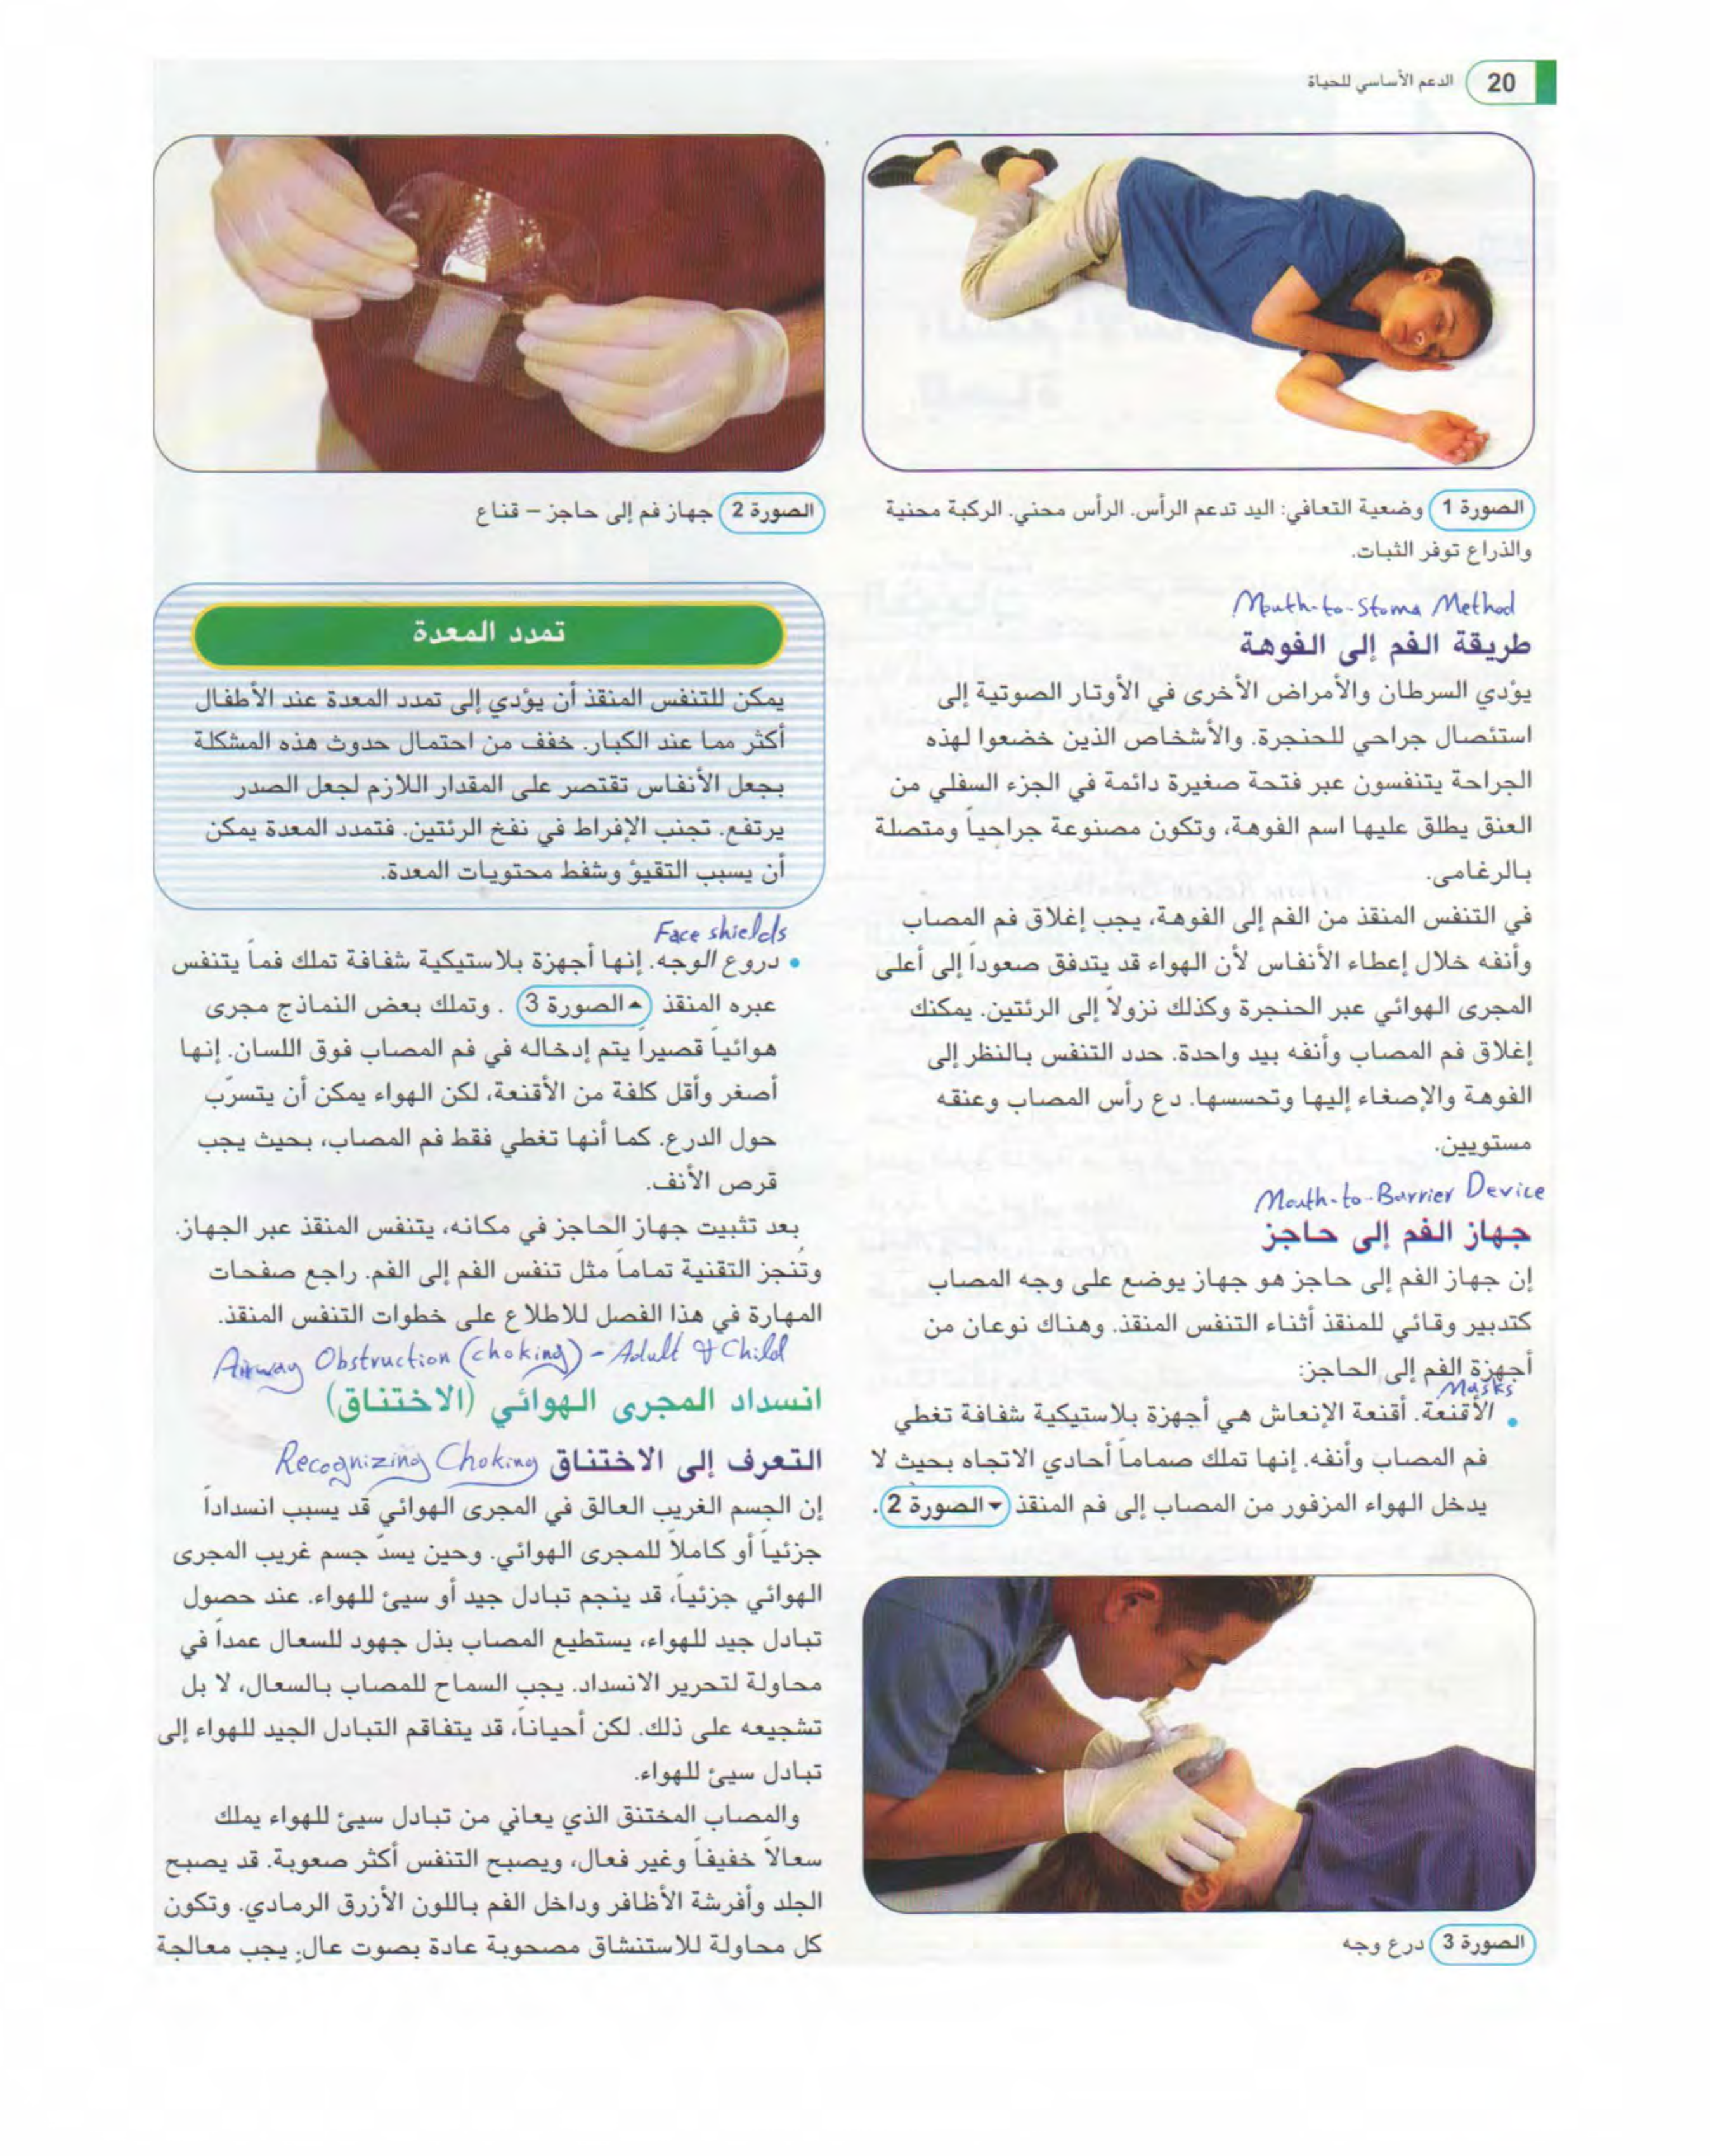 20 الدعم الأساسي للحياة
الصورة 1 وضعية التعافي: اليد تدعم الرأس. الرأس محني. الركبة محنية
والذراع توفر الثبات.
Mouth-to-Stoma Method
طريقة الفم إلى الفوهة
يؤدي السرطان والأمراض الأخرى في الأوتار الصوتية إلى
استئصال جراحي للحنجرة. والأشخاص الذين خضعوا لهذه
الجراحة يتنفسون عبر فتحة صغيرة دائمة في الجزء السفلي من
العنق يطلق عليها اسم الفوهة، وتكون مصنوعة جراحياً ومتصلة
بالرغامى.
في التنفس المنقذ من الفم إلى الفوهة، يجب إغلاق فم المصاب
وأنفه خلال إعطاء الأنفاس لأن الهواء قد يتدفق صعوداً إلى أعلى
المجرى الهوائي عبر الحنجرة وكذلك نزولاً إلى الرئتين. يمكنك
إغلاق فم المصاب وأنفه بيد واحدة. حدد التنفس بالنظر إلى
الفوهة والإصغاء إليها وتحسسها. دع رأس المصاب وعنقه
مستويين.
Mouth-to-Barrier Device
جهاز الفم إلى حاجز
إن جهاز الفم إلى حاجز هو جهاز يوضع على وجه المصاب
كتدبير وقائي للمنقذ أثناء التنفس المنقذ. وهناك نوعان من
أجهزة الفم إلى الحاجز:
Masks
• الأقنعة. أقنعة الإنعاش هي أجهزة بلاستيكية شفافة تغطي
فم المصاب وأنفه. إنها تملك صماماً أحادي الاتجاه بحيث لا
يدخل الهواء المزفور من المصاب إلى فم المنقذ ▼الصورة 2.
الصورة 3 درع وجه
الصورة 2 جهاز فم إلى حاجز – قناع
تمدد المعدة
يمكن للتنفس المنقذ أن يؤدي إلى تمدد المعدة عند الأطفال
أكثر مما عند الكبار. خفف من احتمال حدوث هذه المشكلة
بجعل الأنفاس تقتصر على المقدار اللازم لجعل الصدر
يرتفع. تجنب الإفراط في نفخ الرئتين. فتمدد المعدة يمكن
أن يسبب التقيؤ وشفط محتويات المعدة.
Face shields
• دروع الوجه. إنها أجهزة بلاستيكية شفافة تملك فماً يتنفس
عبره المنقذ ▲الصورة 3 . وتملك بعض النماذج مجرى
هوائياً قصيراً يتم إدخاله في فم المصاب فوق اللسان. إنها
أصغر وأقل كلفة من الأقنعة، لكن الهواء يمكن أن يتسرّب
حول الدرع. كما أنها تغطي فقط فم المصاب، بحيث يجب
قرص الأنف.
بعد تثبيت جهاز الحاجز في مكانه، يتنفس المنقذ عبر الجهاز.
وتُنجز التقنية تماماً مثل تنفس الفم إلى الفم. راجع صفحات
المهارة في هذا الفصل للاطلاع على خطوات التنفس المنقذ.
Airway Obstruction (choking) - Adult & Child
انسداد المجرى الهوائي (الاختناق)
التعرف إلى الاختناق Recognizing Choking
إن الجسم الغريب العالق في المجرى الهوائي قد يسبب انسداداً
جزئياً أو كاملاً للمجرى الهوائي. وحين يسدّ جسم غريب المجرى
الهوائي جزئياً، قد ينجم تبادل جيد أو سيئ للهواء. عند حصول
تبادل جيد للهواء، يستطيع المصاب بذل جهود للسعال عمداً في
محاولة لتحرير الانسداد. يجب السماح للمصاب بالسعال، لا بل
تشجيعه على ذلك. لكن أحياناً، قد يتفاقم التبادل الجيد للهواء إلى
تبادل سيئ للهواء.
والمصاب المختنق الذي يعاني من تبادل سيئ للهواء يملك
سعالاً خفيفاً وغير فعال، ويصبح التنفس أكثر صعوبة. قد يصبح
الجلد وأفرشة الأظافر وداخل الفم باللون الأزرق الرمادي. وتكون
كل محاولة للاستنشاق مصحوبة عادة بصوت عالٍ. يجب معالجة